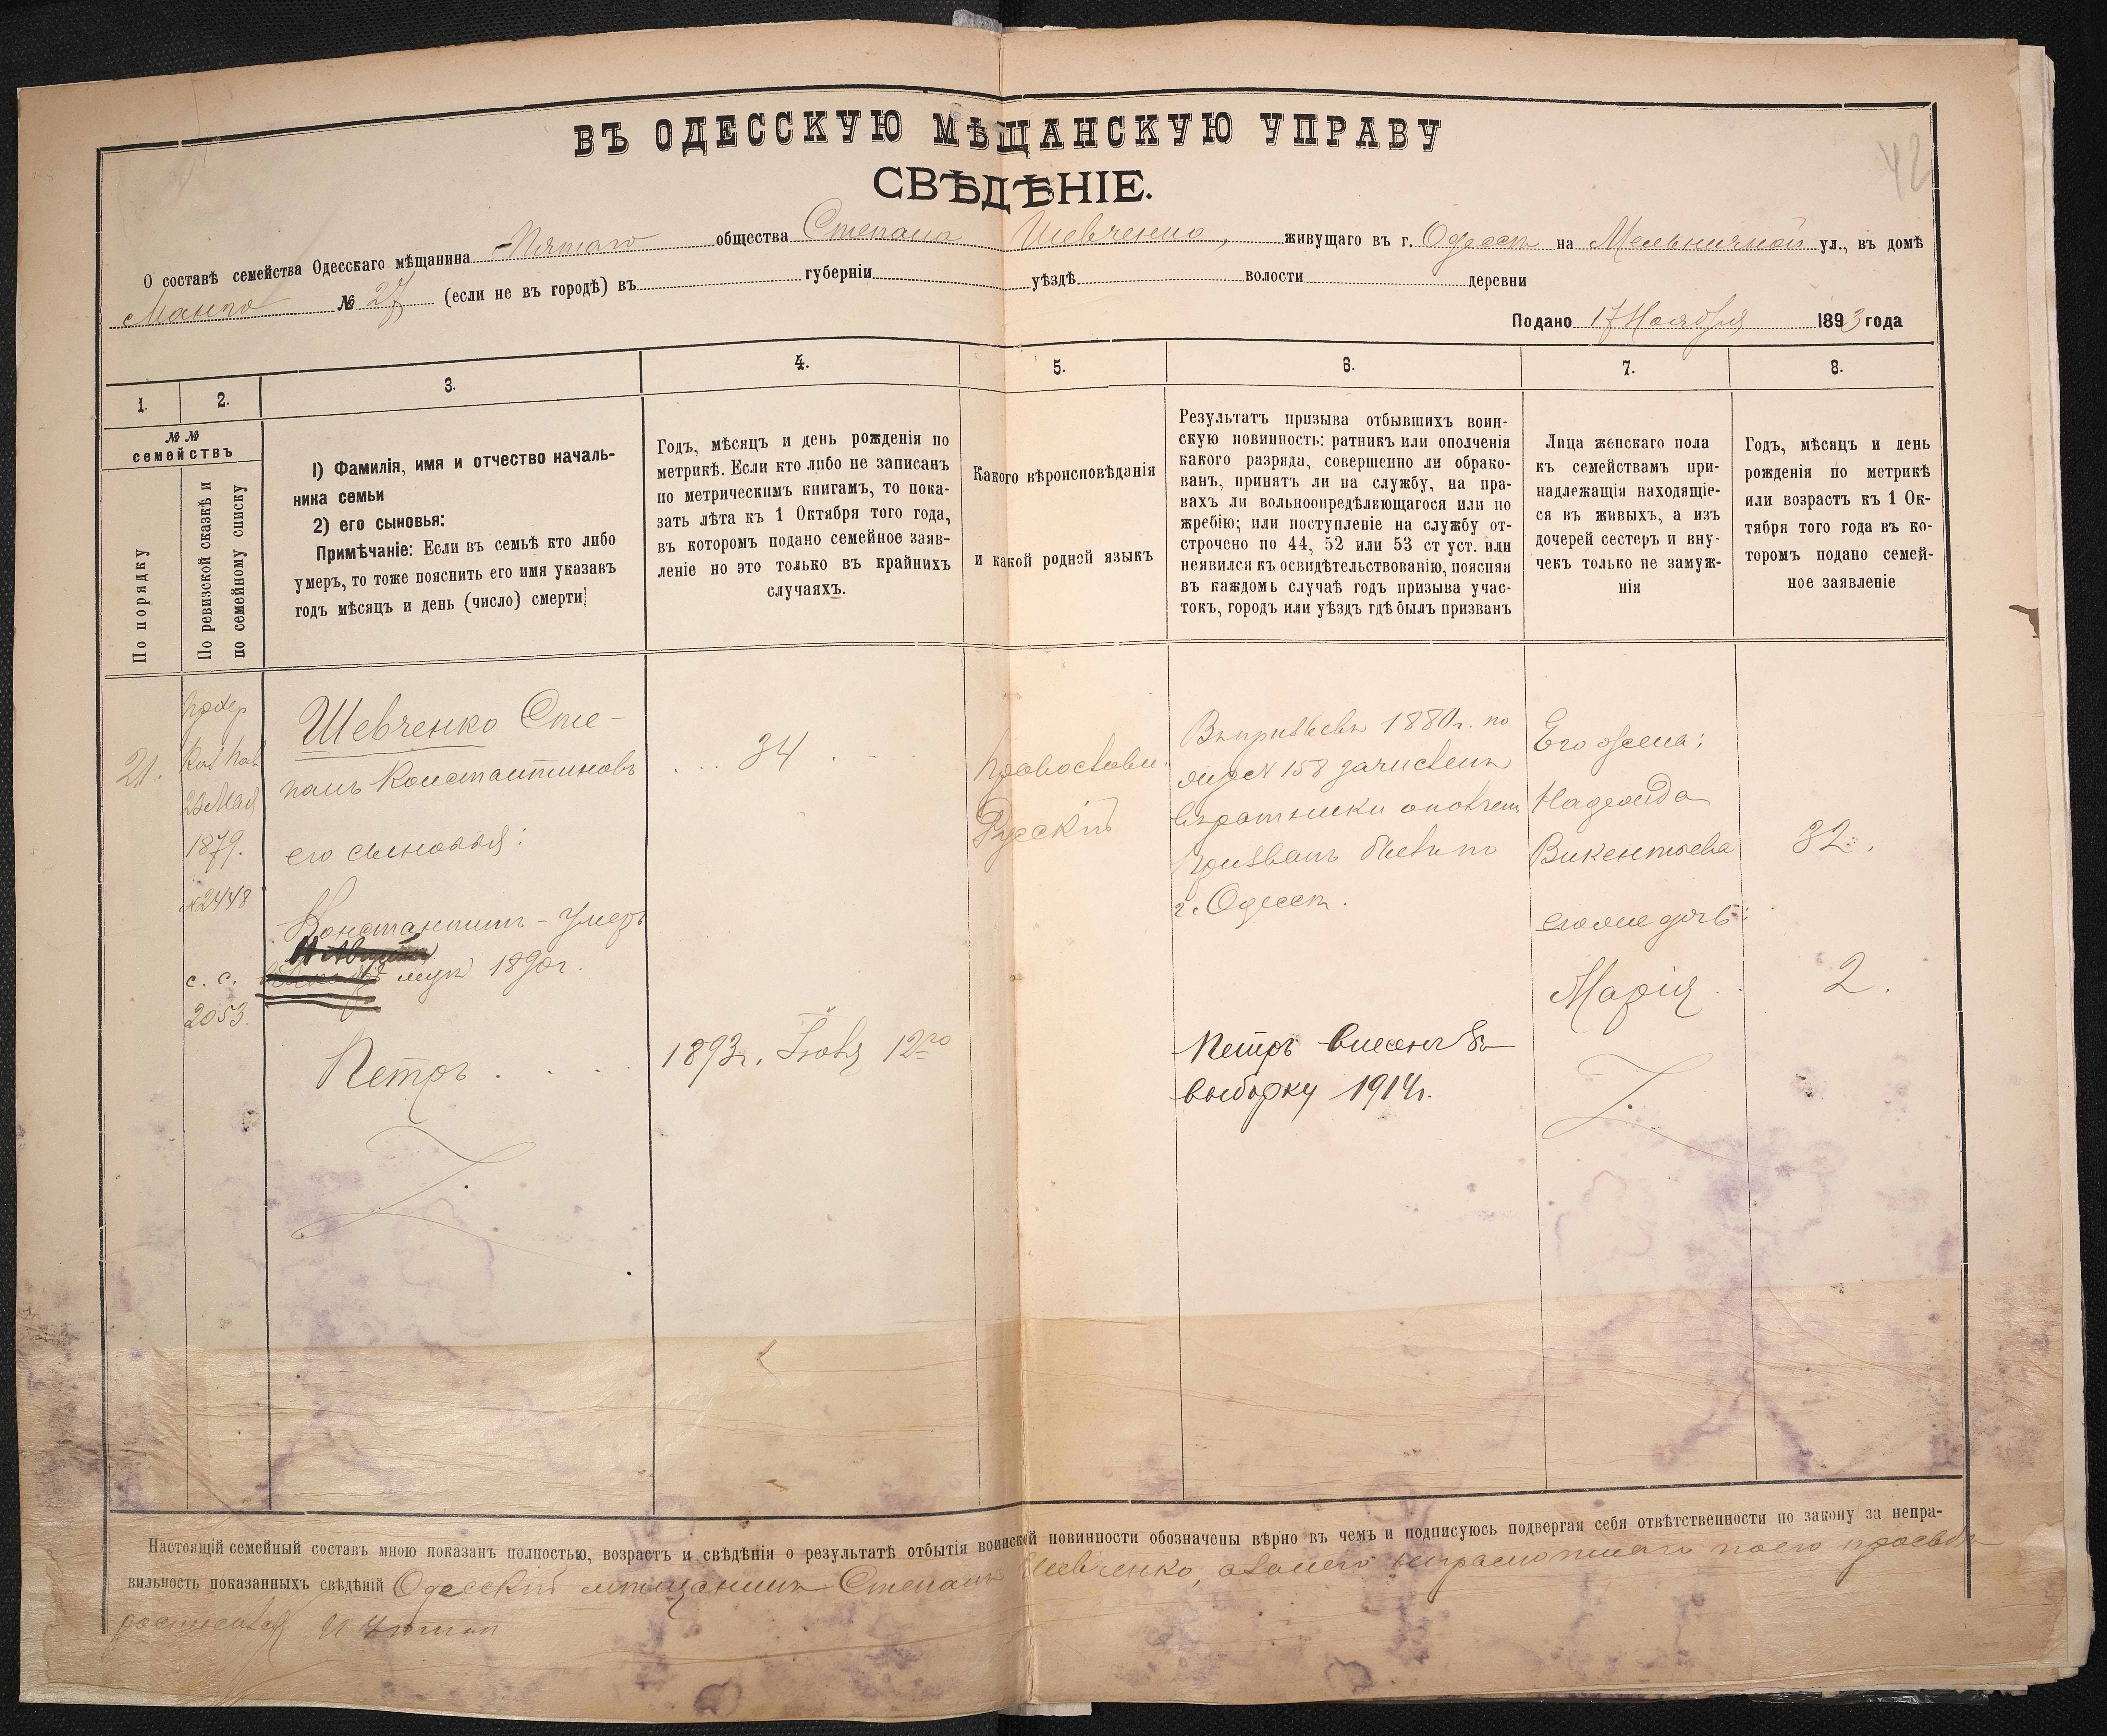 ВЪ ОДЕССКУЮ МѢЩАНСКУЮ УПРАВУ
СВѢДѢНІЕ.
42
О составѣ семейства Одесскаго мѣщанина Пятаго общества Степана Шевченко, живущаго въ г. Одессѣ на Мельничной ул., въ домѣ
№ 27 (если не въ городѣ) въ губерніи уѣздѣ волости деревни
Подано 17 Ноября 1893 года
1.
2.
3.
4.
5.
6.
7.
8.
№ №
семействъ
По порядку
По ревизской сказкѣ и
по семейному списку
1) Фамилія, имя и отчество началь-
ника семьи
2) его сыновья:
Примѣчаніе: Если въ семьѣ кто либо
умеръ, то тоже пояснить его имя указавъ
годъ мѣсяцъ и день (число) смерти;
Годъ, мѣсяцъ и день рожденія по
метрикѣ. Если кто либо не записанъ
по метрическимъ книгамъ, то пока-
зать лѣта къ 1 Октября того года,
въ которомъ подано семейное заяв-
леніе но это только въ крайнихъ
случаяхъ.
Какого вѣроисповѣданія
и какой родной языкъ
Результатъ призыва отбывшихъ воин-
скую повинность: ратникъ или ополченія
какого разряда, совершенно ли обрако-
ванъ, принятъ ли на службу, на пра-
вахъ ли вольноопредѣляющагося или по
жребію; или поступленіе на службу от-
строчено по 44, 52 или 53 ст уст. или
неявился къ освидѣтельствованію, поясняя
въ каждомъ случаѣ годъ призыва учас-
токъ, городъ или уѣздъ гдѣ былъ призванъ
Лица женскаго пола
къ семействамъ при-
надлежащія находящіе-
ся въ живыхъ, а изъ
дочерей сестеръ и вну-
чекъ только не замуж-
нія
Годъ, мѣсяцъ и день
рожденія по метрикѣ
или возрастъ къ 1 Ок-
тября того года въ ко-
торомъ подано семей-
ное заявленіе
21.
23 Мая
1879.
№ 2448
с. с.
2053.
Шевченко Сте-
панъ Константиновъ
его сыновья:
Константинъ - умеръ
1890г.
Петръ
34
1893г. Іюля 12го
Православн.
Русскій
Въ призывѣ 1880г. по
жер № 158 зачисленъ
въ ратники ополчен
призванъ былъ по
г. Одессѣ.
Петръ внесенъ въ
выборку 1914г.
Его жена:
Надежда
Викентьева
его же дочь:
Марія
32.
2.
Настоящій семейный составъ мною показанъ полностью, возрастъ и свѣдѣнія о результатѣ отбытія воинской повинности обозначены вѣрно въ чемъ и подписуюсь подвергая себя отвѣтственности по закону за непра-
вильность показанныхъ свѣдѣній Одесскій мѣщанинъ Степанъ Шевченко, а за него неграмотнаго по его просьбѣ
росписался